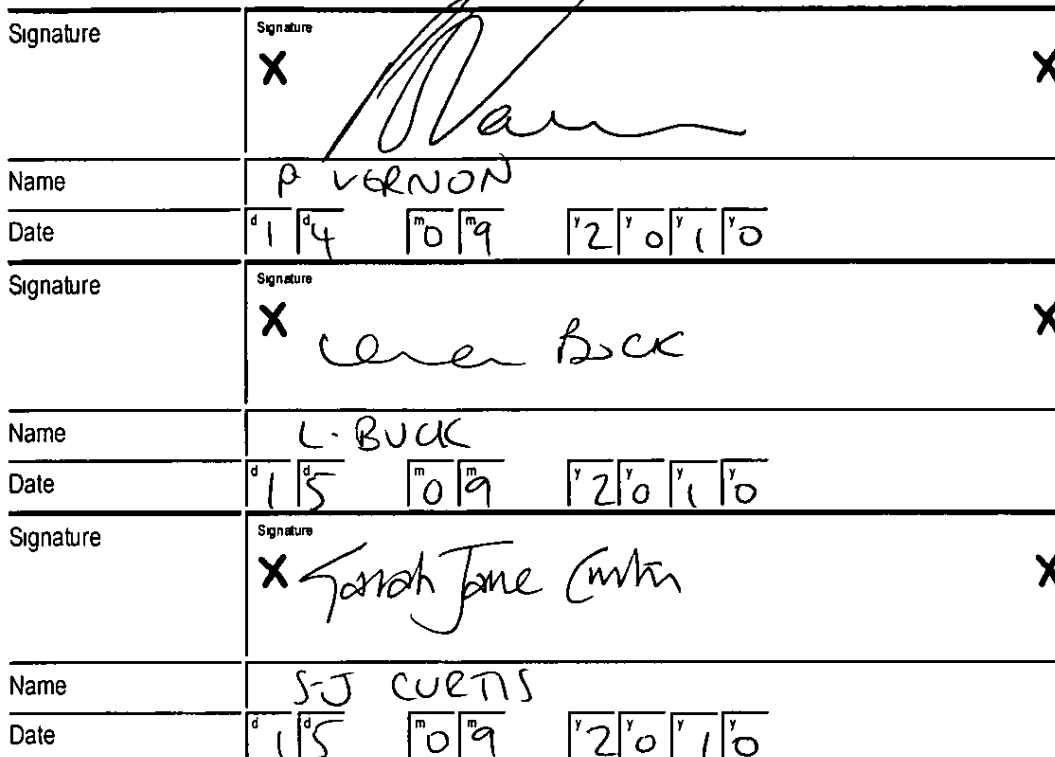 Signature Signature
X X
Name P VERNON
Date d1 d4 m0 m9 y2 y0 y1 y0
Signature Signature
X Buck X
Name L. BUCK
Date d1 d5 m0 m9 y2 y0 y1 y0
Signature Signature
X Sarah Jane Curtis X
Name S-J CURTIS
Date d1 d5 m0 m9 y2 y0 y1 y0